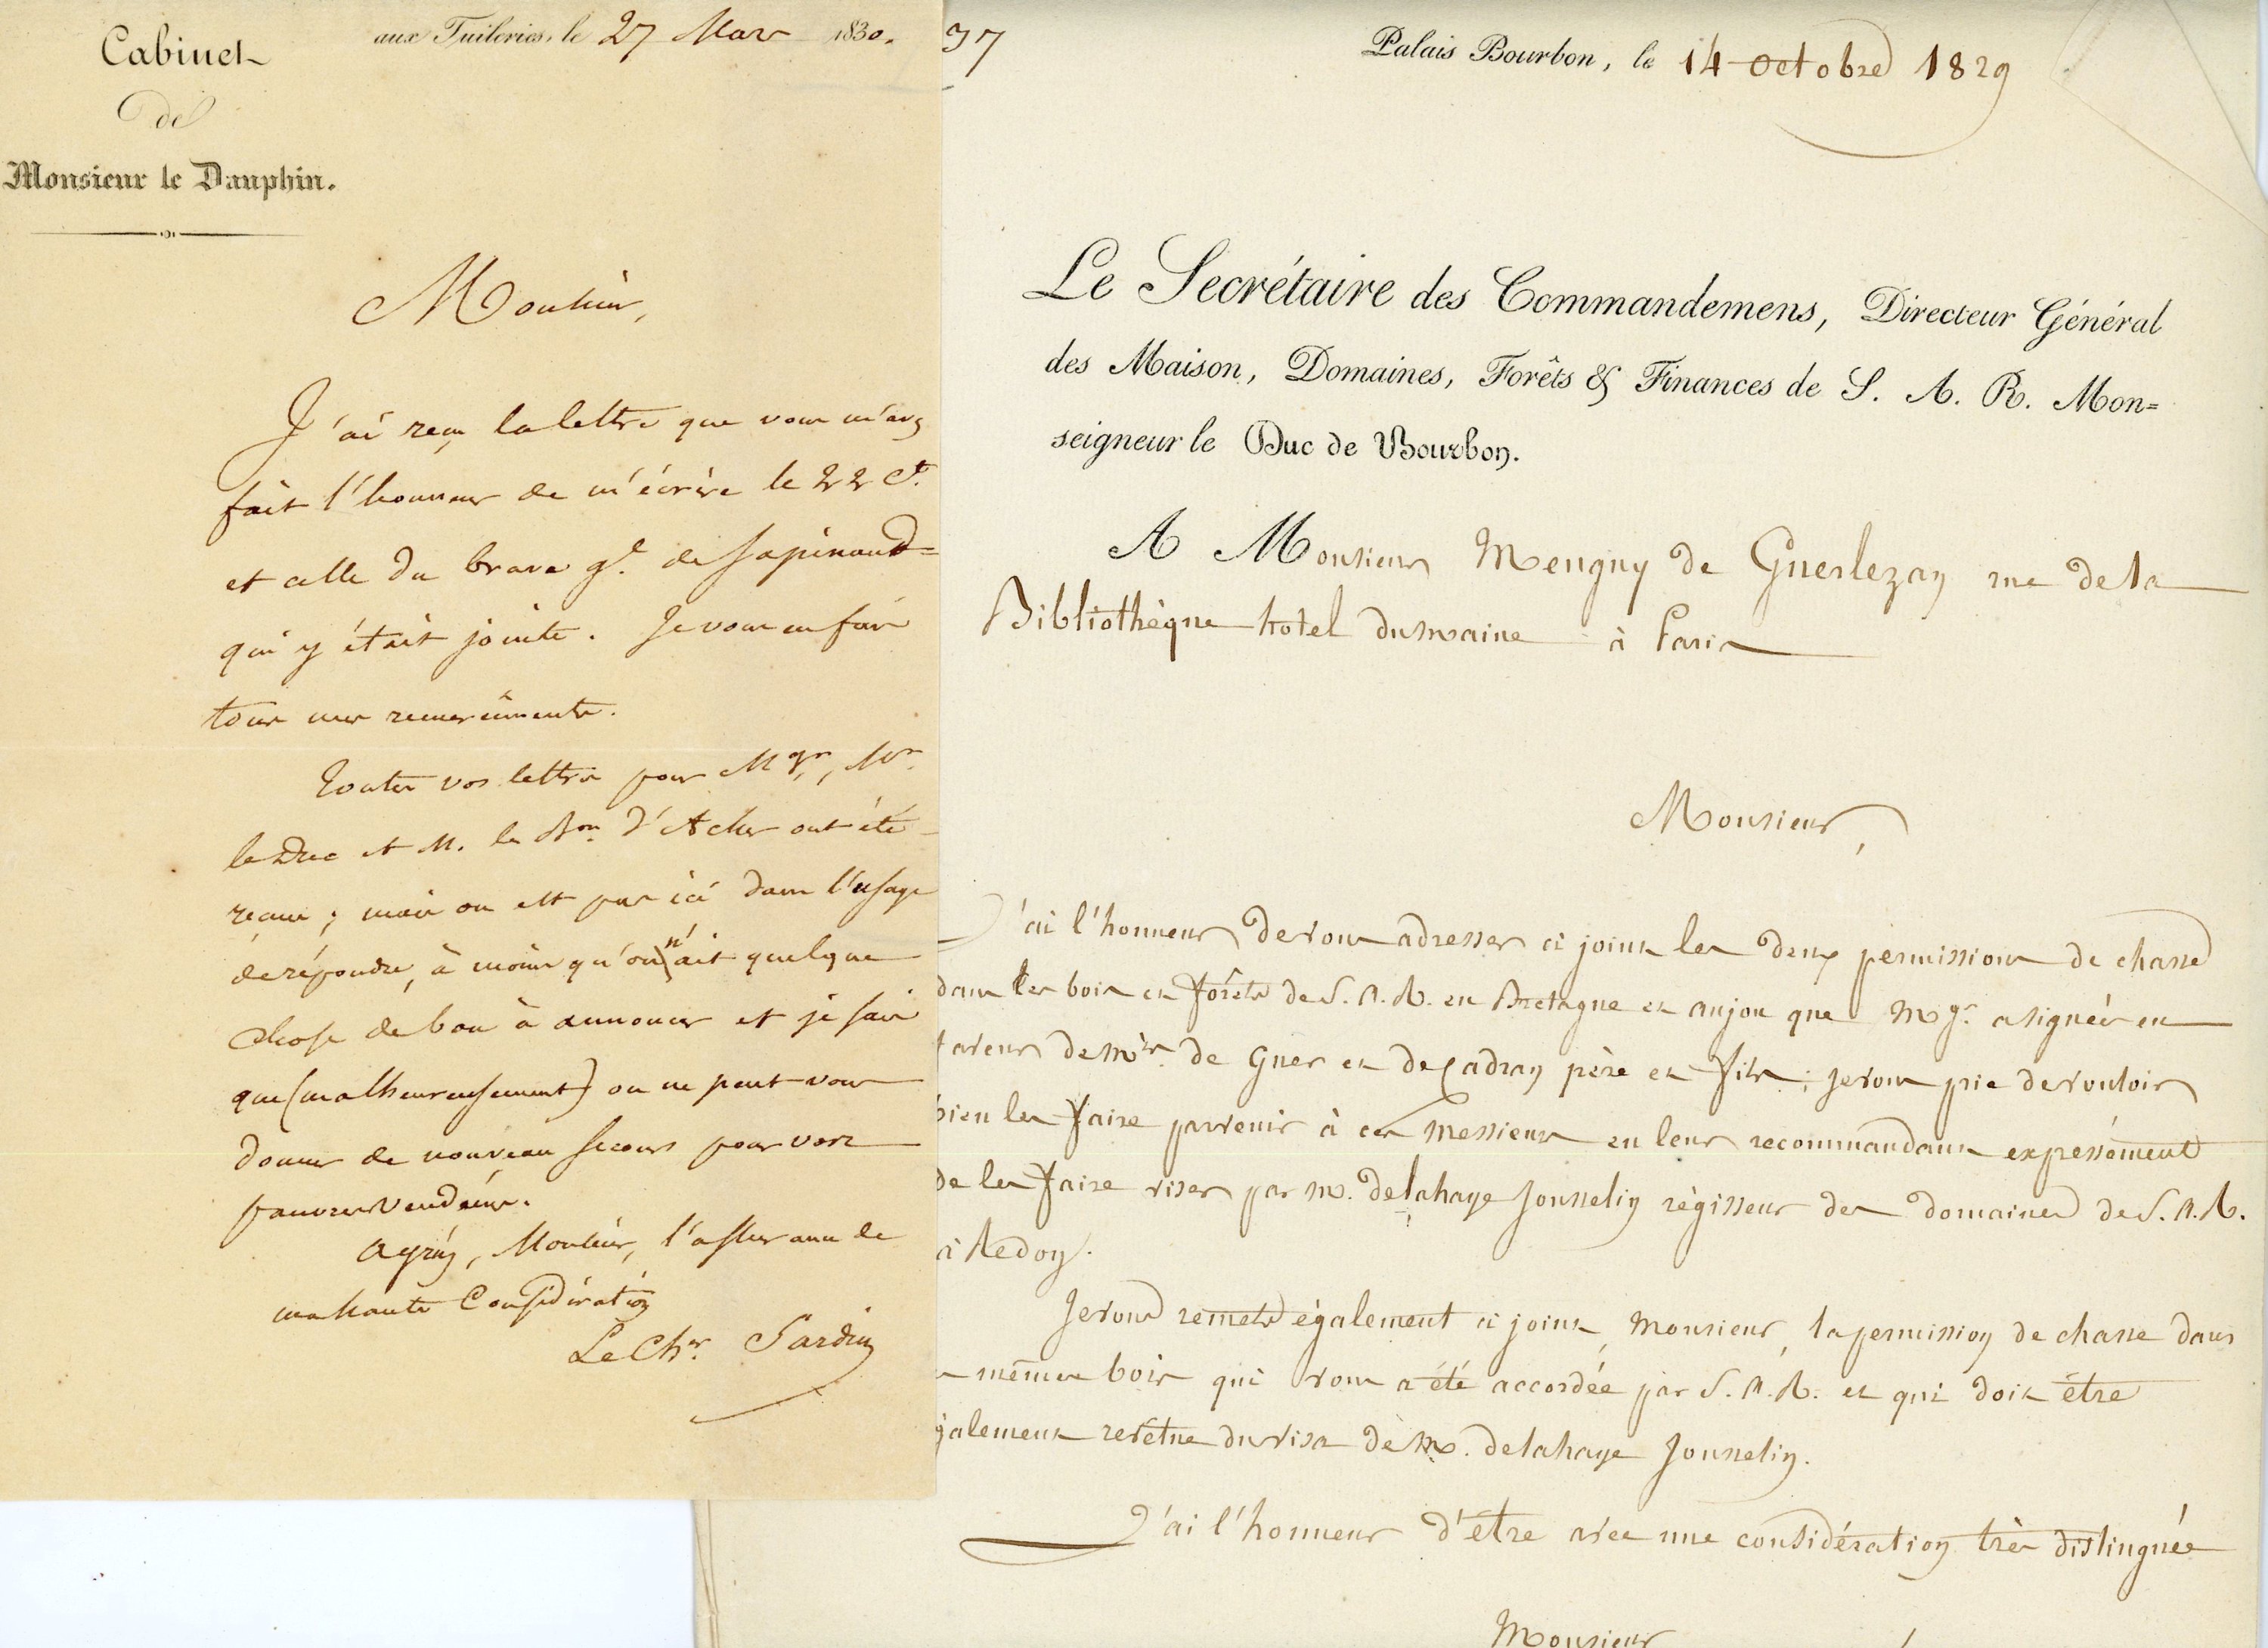 Cabinet
de
Monsieur le Dauphin.
aux Tuileries, le 27 Mars 1830.
Monsieur,
J'ai reçu la lettre que vous m'avez
fait l'honneur de m'écrire le 22 Ct.
et celle du brave gl. de Sapinaud
qui y était jointe. Je vous en fais
tous mes remerciments.
Toutes vos lettres pour Mgr, Mr.
le Duc et M. le Bon. d'Acher ont été
reçues; mais on est pas ici dans l'usage
de répondre, à moins qu'on n'ait quelque
chose de bon à annoncer et je sais
que (malheureusement) on ne peut vous
donner de nouveau secours pour vos
pauvres Vendéens.
Agréez, Monsieur, l'assurance de
ma haute Considération
Le Chr. Sardin
37
Palais Bourbon, le 14 octobre 1829
Le Secrétaire des Commandemens, Directeur Général
des Maison, Domaines, Forêts & Finances de S. A. R. Mon=
seigneur le Duc de Bourbon.
A Monsieur Mengny de Guerlezan rue de la
Bibliothèque hotel du maine à Paris
Monsieur,
J'ai l'honneur de vous adresser ci joint les deux permissions de chasse
dans les bois et forêts de S. A. R. en Bretagne et anjou que Mgr. a signées en
faveur de Mrs. de Guer et de Cadran père et fils; je vous prie de vouloir
bien les faire parvenir à ces Messieurs en leurs recommandant expressément
de les faire viser par m. delahaye Jousselin régisseur des domaines de S. A. R.
à Redon.
Je vous remets également ci joint, Monsieur, la permission de chasse dans
mêmes bois qui vous a été accordée par S. A. R. et qui doit être
également revêtue du visa de M. delahaye Jousselin.
J'ai l'honneur d'etre avec une considération très distinguée
Monsieur